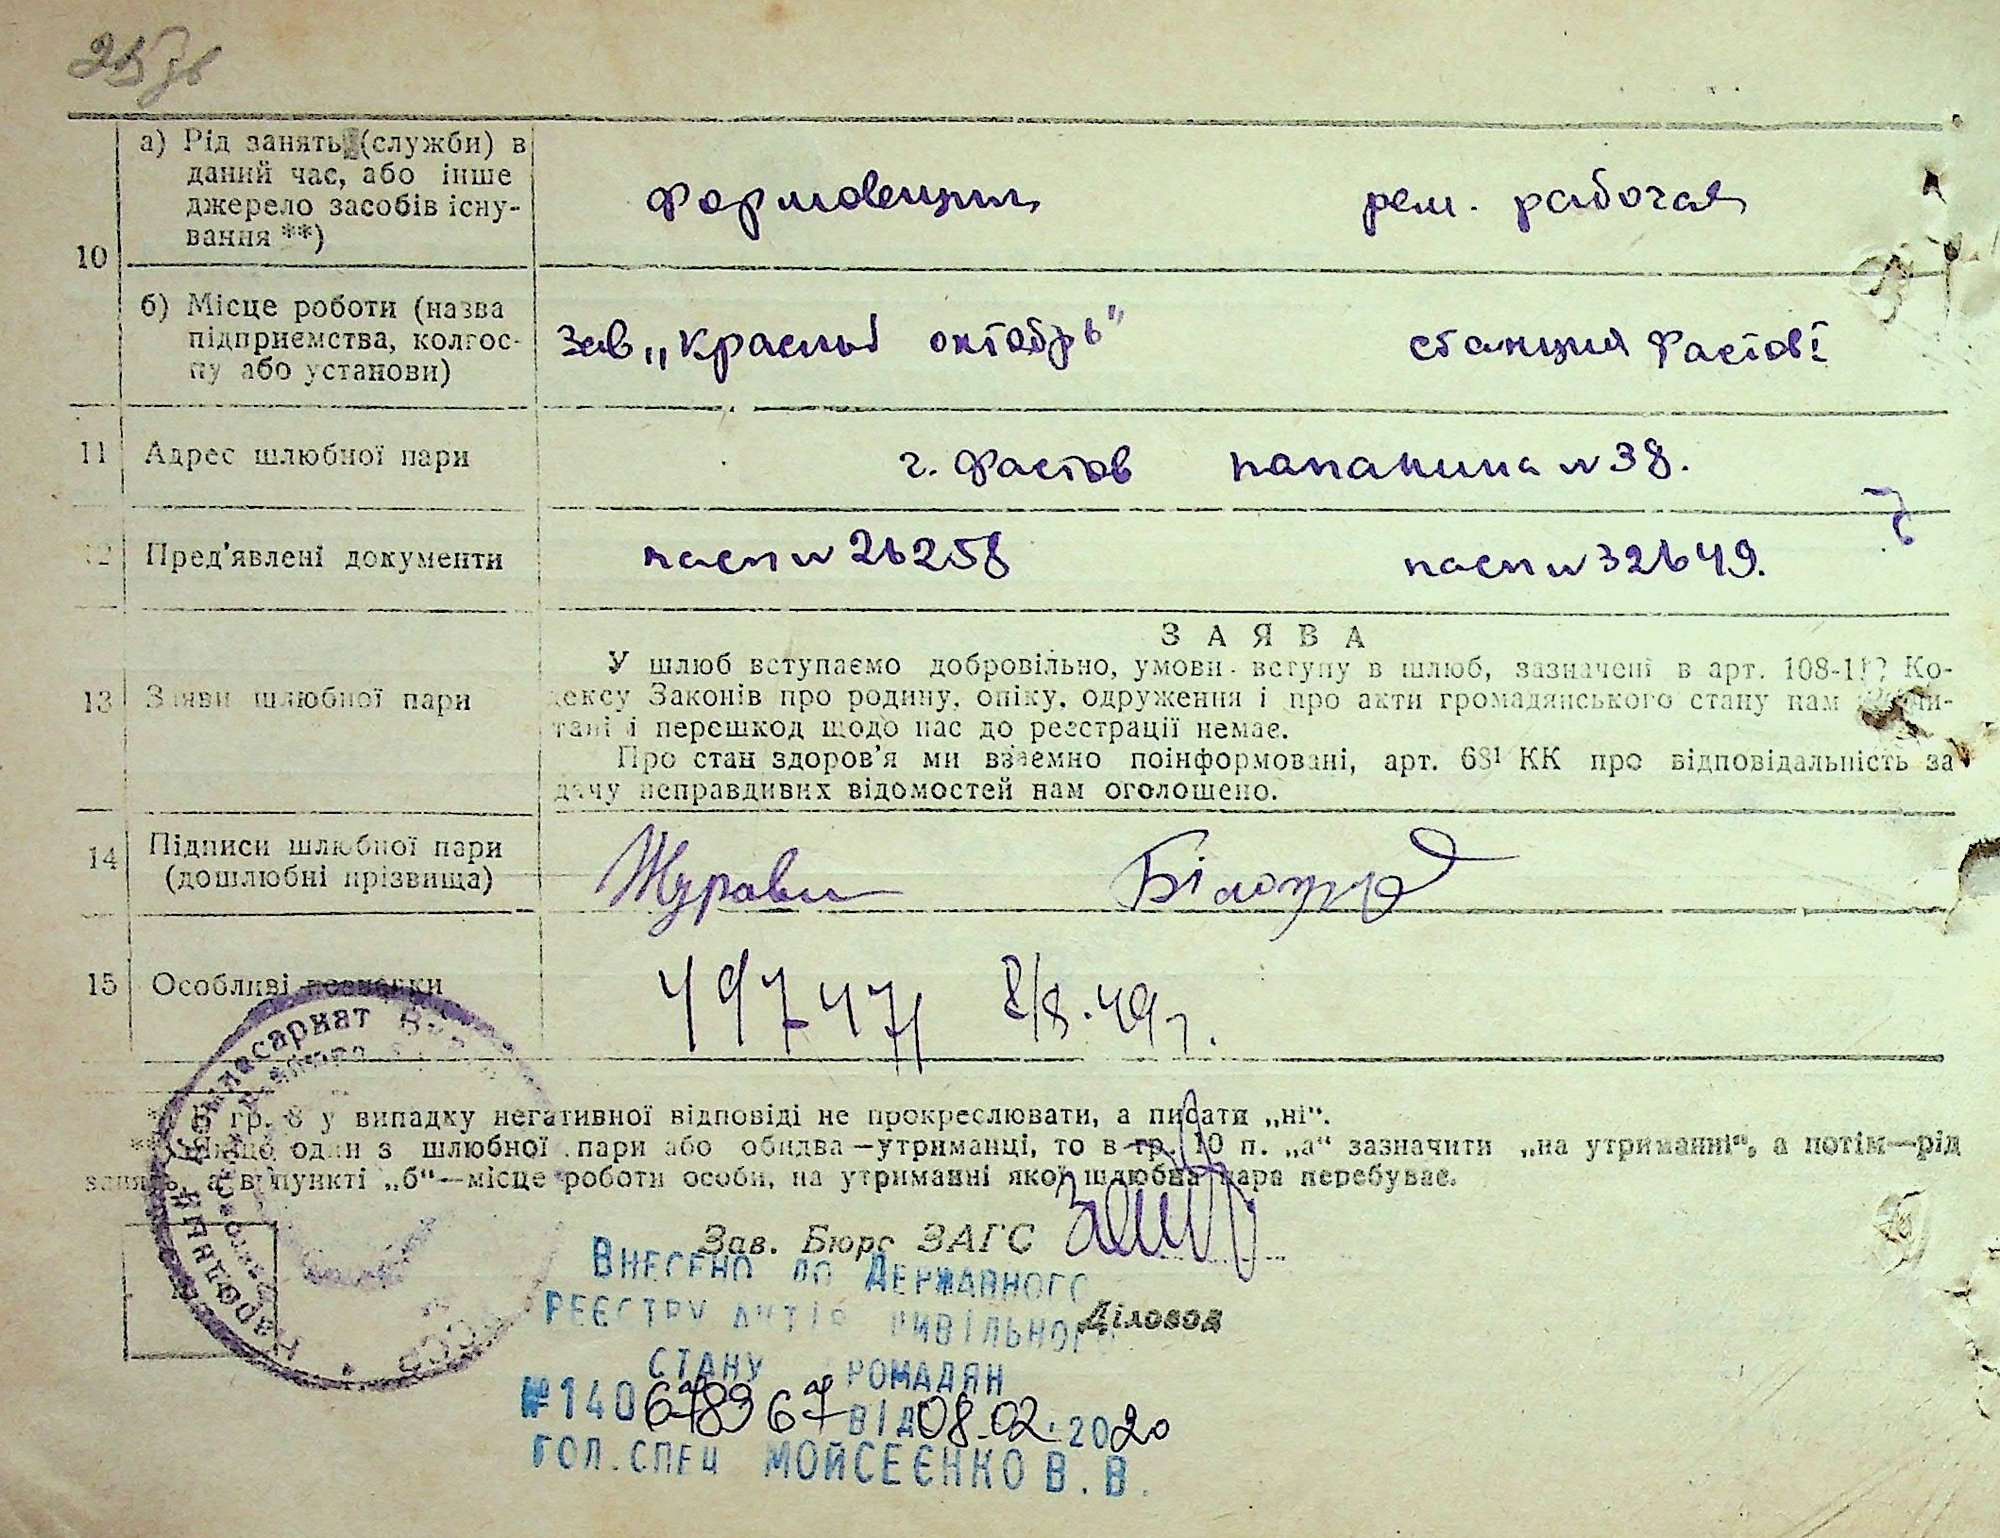 10
а) Рід занять (служби) в даний час, або інше джерело засобів існування **)
формовещик
рем. рабочая
б) Місце роботи (назва підприємства, колгоспу або установи)
Зав „Красный октябрь"
станция Фастов I
11 Адрес шлюбної пари
г. Фастов папанина № 38.
12 Пред'явлені документи
пасп № 26258
пасп № 32649.
13 Заяви шлюбної пари
ЗАЯВА
У шлюб вступаємо добровільно, умови вступу в шлюб, зазначені в арт. 108-112 Ко-
дексу Законів про родину, опіку, одруження і про акти громадянського стану нам
і перешкод щодо нас до реєстрації немає.
Про стан здоров'я ми взаємно поінформовані, арт. 68¹ КК про відповідальність за
дачу неправдивих відомостей нам оголошено.
14 Підписи шлюбної пари
(дошлюбні прізвища)
15 Особливі позначки
8/8.49г.
гр. 8 у випадку негативної відповіді не прокреслювати, а писати „ні".
**) Якщо один з шлюбної пари або обидва—утриманці, то в гр. 10 п. „а" зазначити „на утриманні", а потім—рід
занять, а в пункті „б"—місце роботи особи, на утриманні якої шлюбна пара перебуває.
Зав. Бюро ЗАГС
Діловод
ВНЕСЕНО ДО ДЕРЖАВНОГО
РЕЄСТРУ АКТІВ ЦИВІЛЬНОГО
СТАНУ ГРОМАДЯН
№ 140678967 ВІД 08.02.2020
ГОЛ.СПЕЦ МОЙСЕЄНКО В.В.